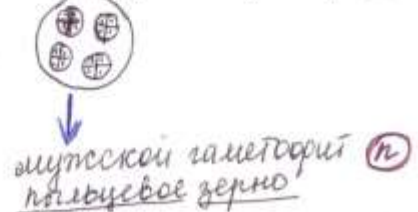 мужской гаметофит n
пыльцевое зерно